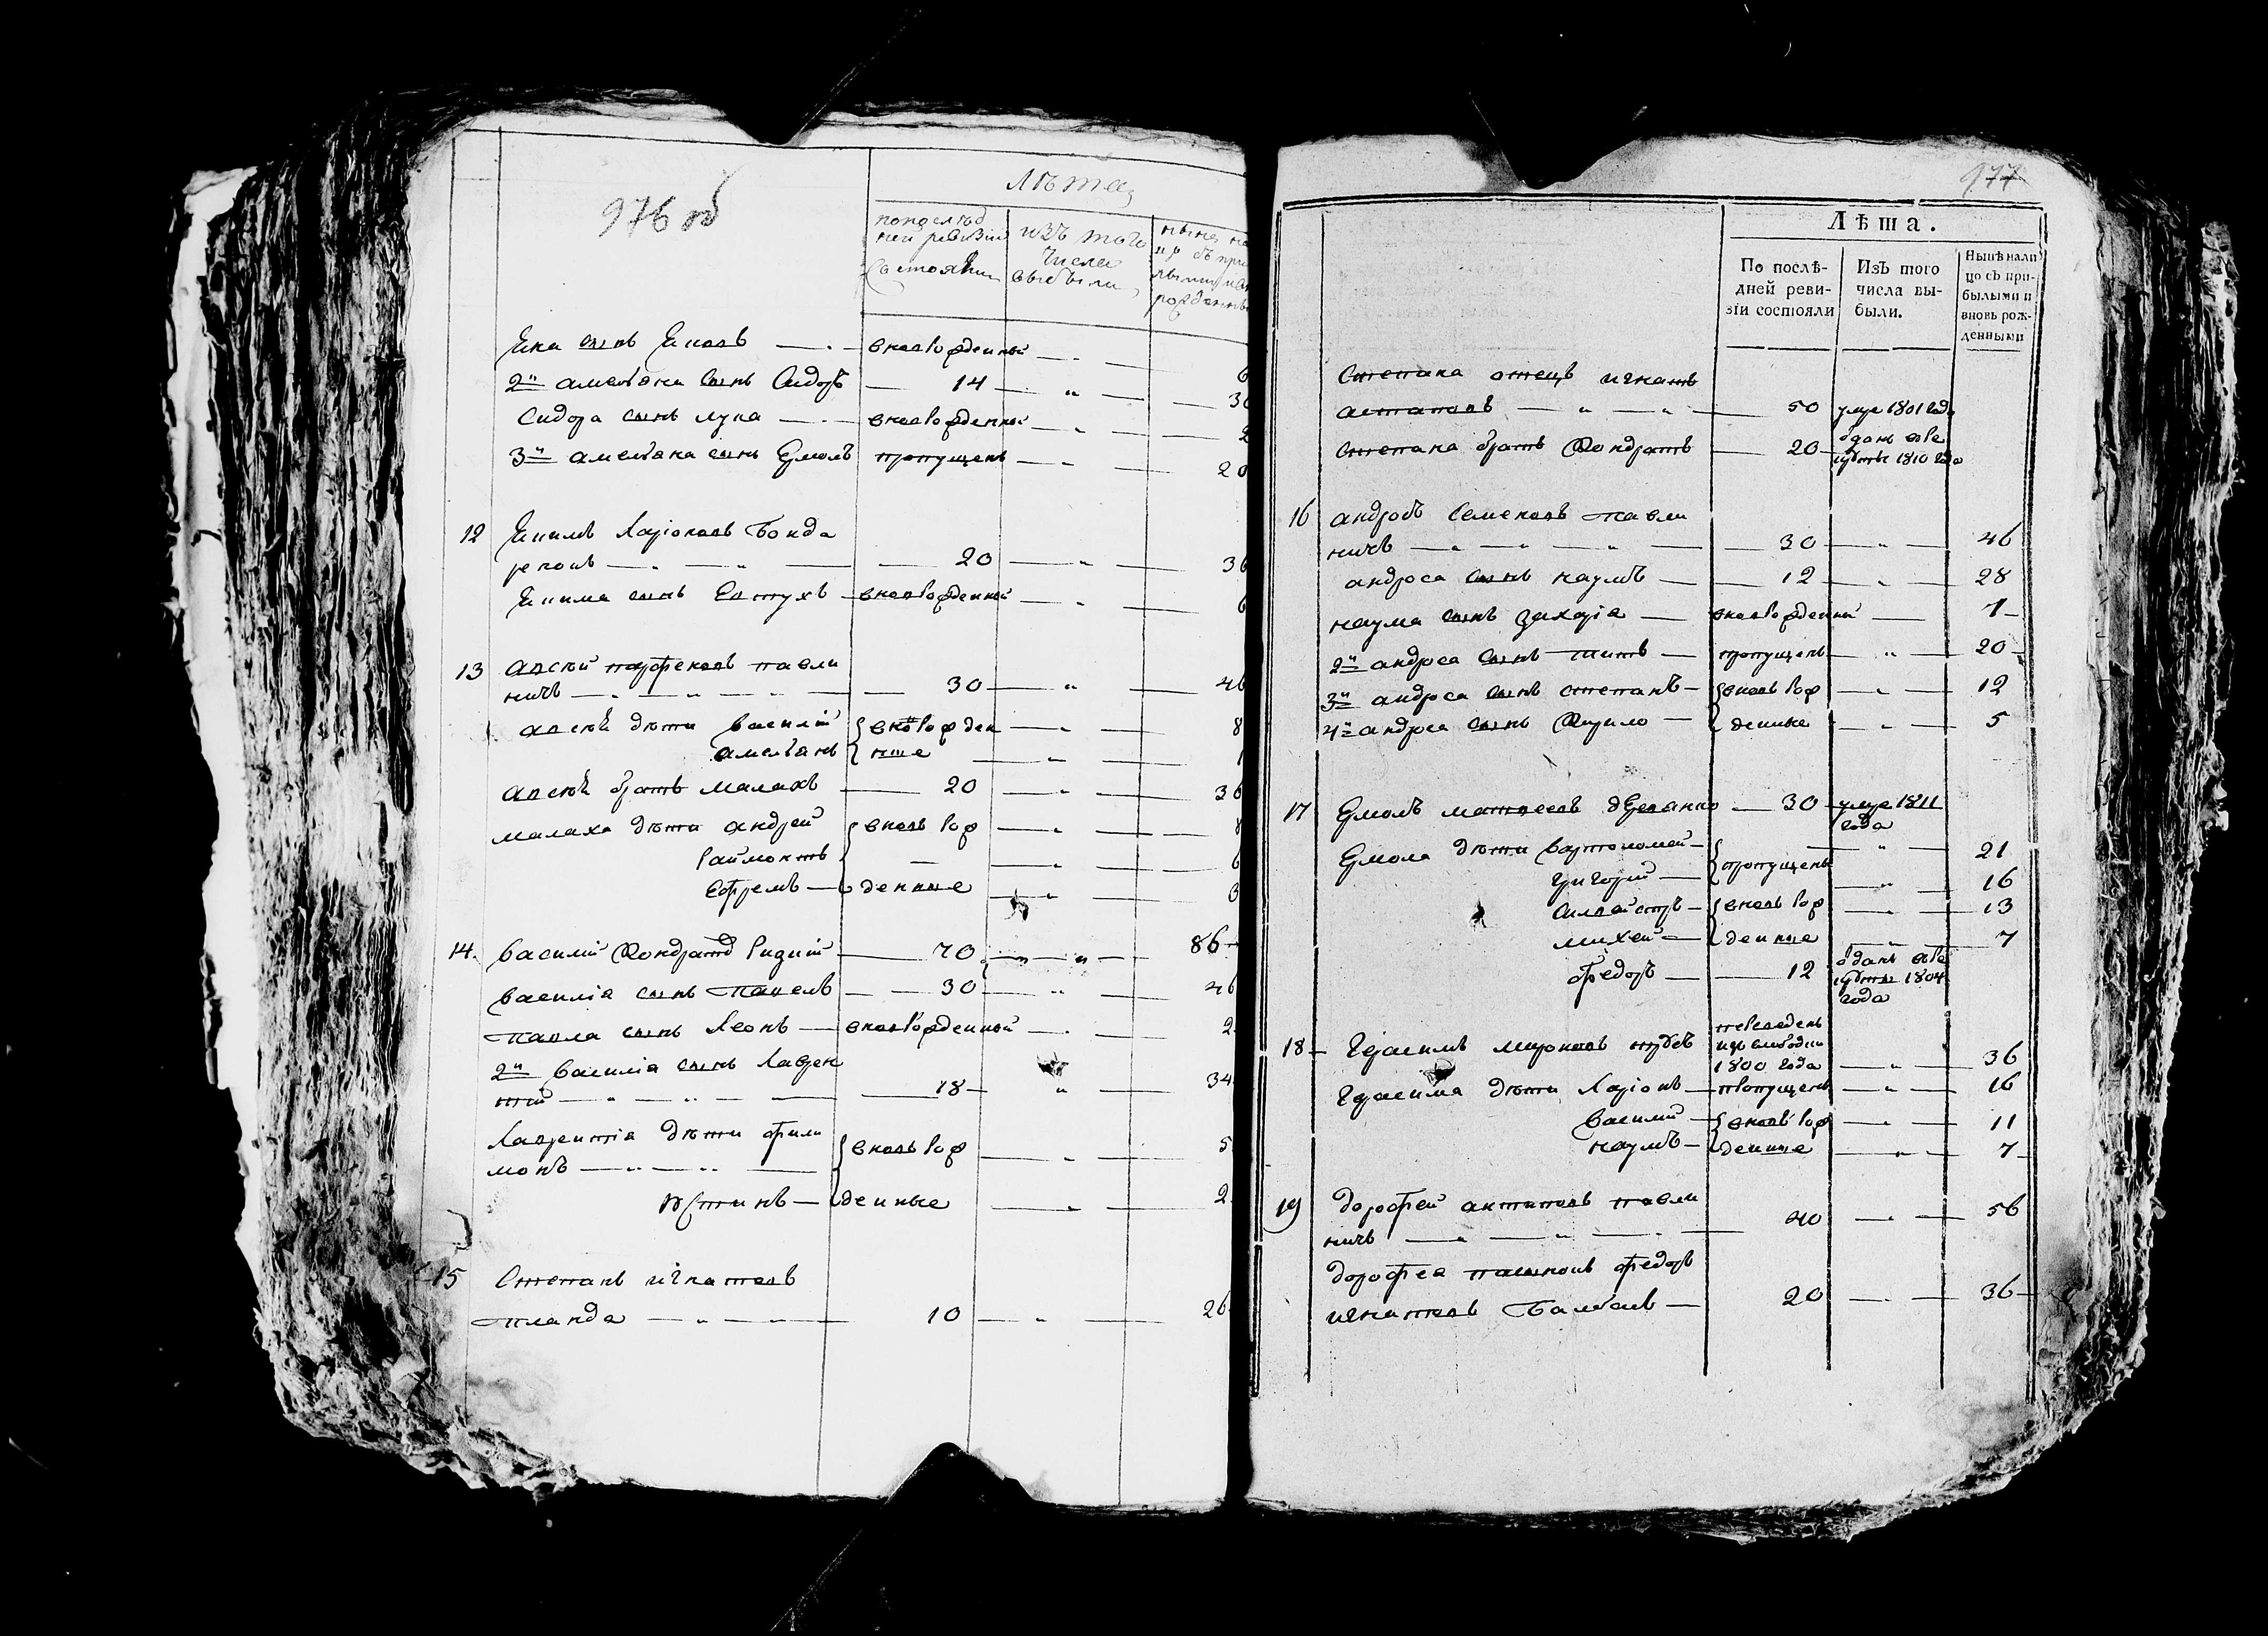 976 об
Лѣта
попослѣд
ней ревизіи
состояли
изъ того
числа
выбыли
нынѣ на
рожденны
сынъ
вноврожденный
2й амельяна сынъ Сидоръ — 14 — „ — 30
Сидора сынъ лука — вноврожденный — „ — 2
3й амельяна сынъ Ермолъ пропущенъ — „ — 20
12 Ларіоновъ Бонда
ренокъ — 20 — „ — 36
сынъ вноврожденный — „ — 6
13 парфеновъ павли
ничъ — „ — 30 — „ — 46
дѣти василій вноврожден — „ — 8
амельянъ ные — „ — 1
братъ малахъ — 20 — „ — 36
малаха дѣти андрей вновь рож — „ — 8
— „ — 6
Ефремъ — денные — „ — 3
14. василій Кондрат — 70 — „ — 86
василія сынъ Павелъ — 30 — „ — 46
павла сынъ Леонъ — вноврожденный — 2
2й василія сынъ Лаврен
тій — „ — 18 — „ — 34
Лаврентія дѣти фили
монъ — „ — вновь рож — „ — 5
Устинъ — денные — „ — 2
15 Степанъ игнатовъ
планда — „ — 10 — „ — 26
977
Лѣта.
По послѣ-
дней реви-
зіи состояли
Изъ того
числа вы-
были.
Нынѣ нали
цо съ при-
былыми и
вновь рож-
денными
Степана отецъ игнатъ
астаповъ — „ — „ — 50 умре 1801 года
Степана братъ Кондратъ — 20 одань въре
круты 1810 года
16 андрѣй Семеновъ павли
ничъ — „ — „ — „ — 30 — „ — 46
андреа сынъ наумъ — 12 — „ — 28
наума сынъ захарія — вноврожденный — 1
2й андреа сынъ титъ — пропущенъ — „ — 20
3й андреа сынъ степанъ — вновь рож — „ — 12
4й андреа сынъ Кирило — денные — „ — 5
17 Ермолъ матвеевъ — 30 умре 1811
года
Ермола дѣти вартоломей — „ — 21
григорій — пропущены — „ — 16
силвестръ — вновь рож — „ — 13
михей — денные — „ — 7
федоръ — 12 одань въре
круты 1804
года
18 Герасимъ мироновъ
переведенъ
изъ слободки
1800 года — „ — 36
Герасима дѣти Ларіонъ — пропущенъ — „ — 16
василій — вновь рож — „ — 11
наумъ — денные — „ — 7
19 дорофей антиповъ павли
ничъ — „ — „ — 40 — „ — 56
дорофеа пасынокъ федоръ
игнатовъ — 20 — „ — 36